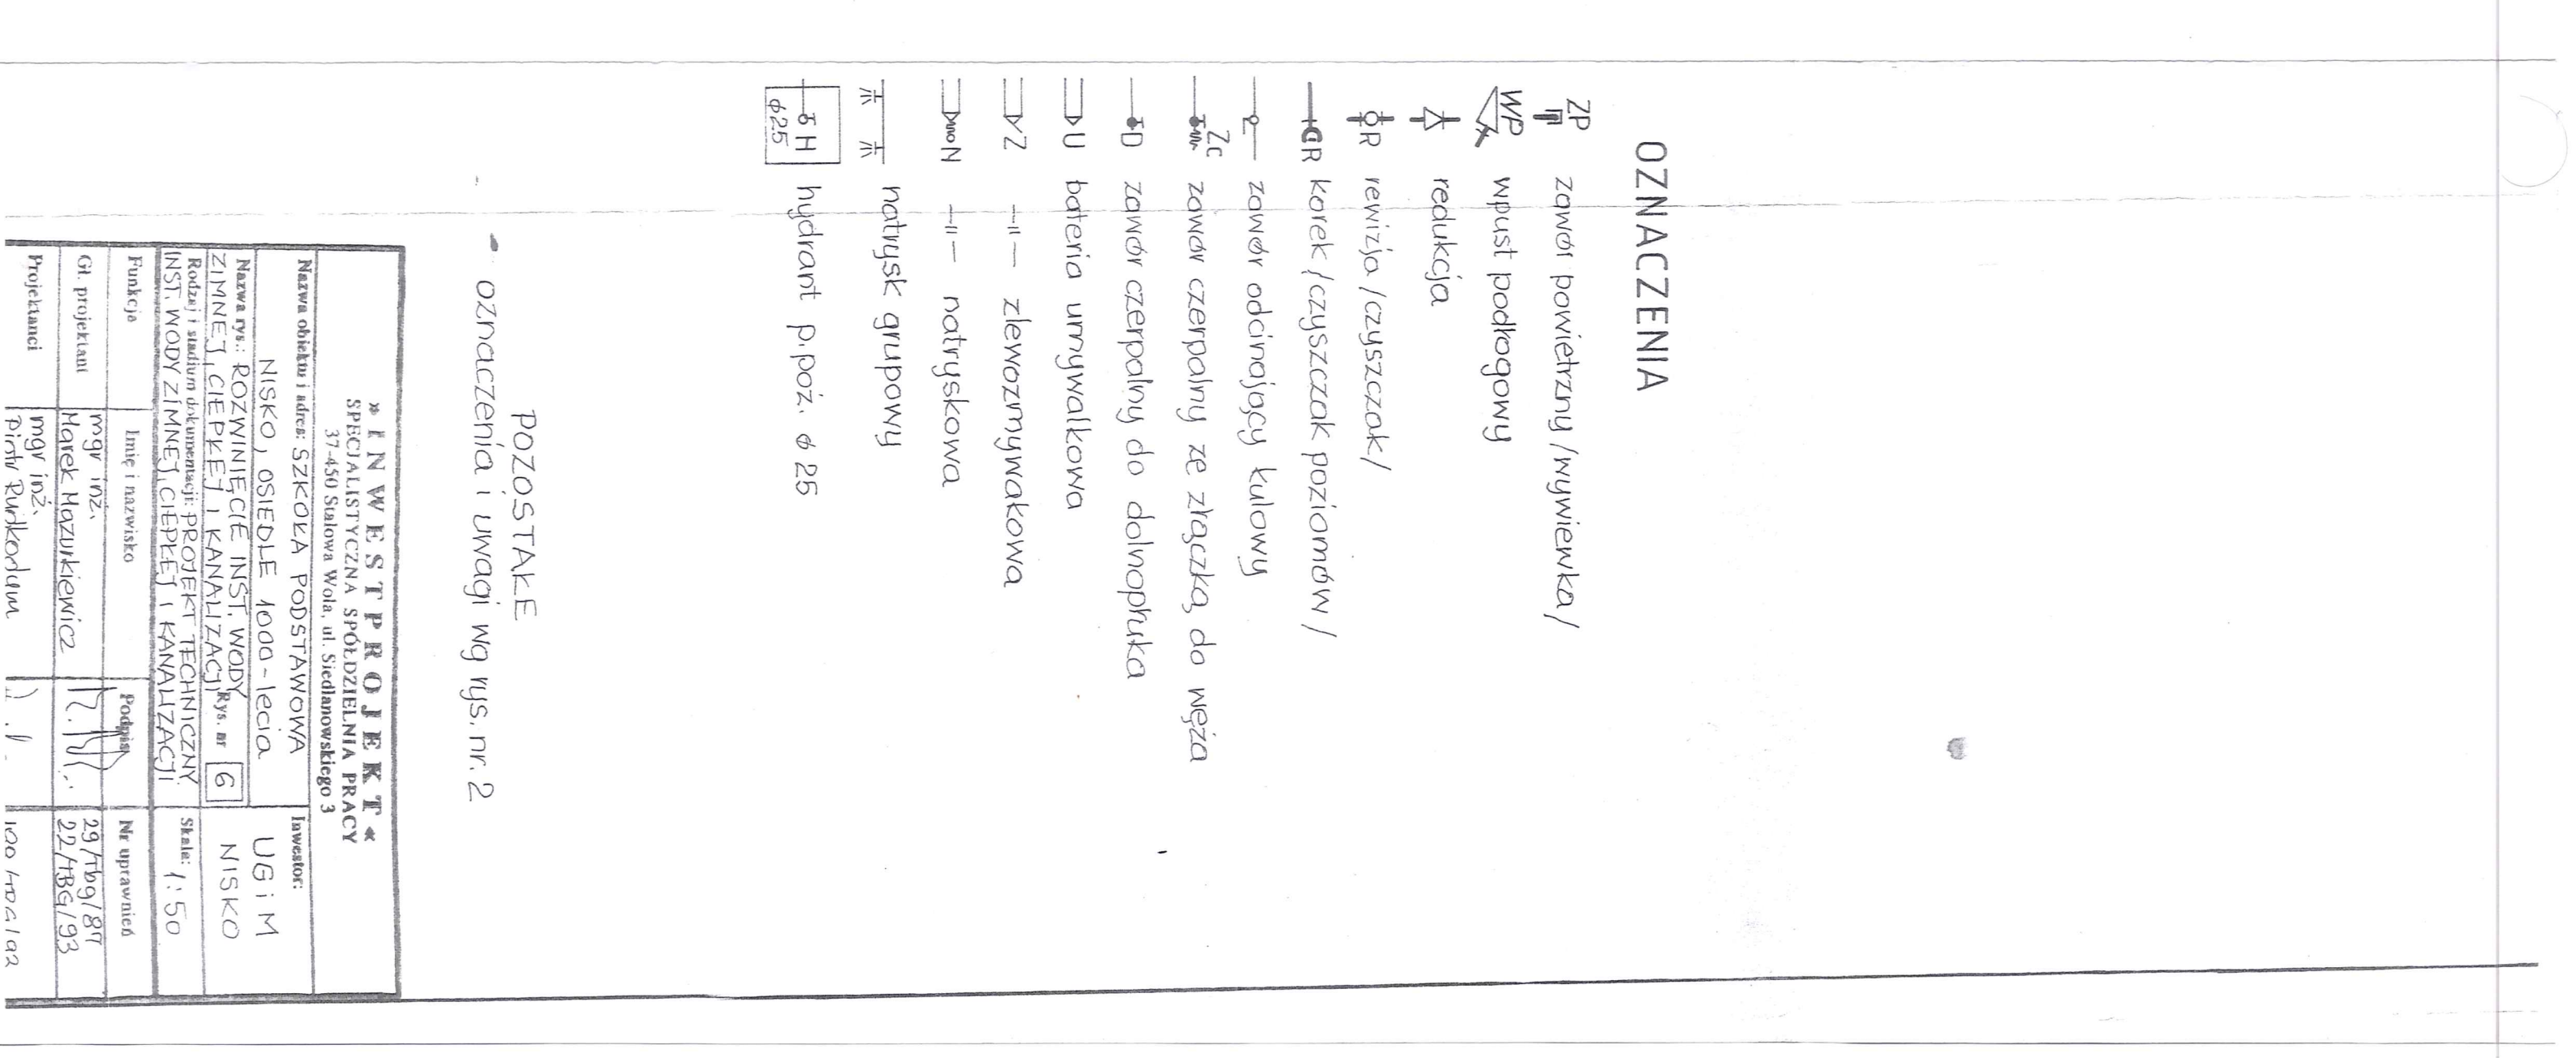 OZNACZENIA
ZP zawór powietrzny /wywiewka/
WP wpust podłogowy
redukcja
R rewizja /czyszczak/
CR korek /czyszczak poziomów/
zawór odcinający kulowy
Zc zawór czerpalny ze złączką do węża
D zawór czerpalny do dolnopłuka
U bateria umywalkowa
Z —"— zlewozmywakowa
N —"— natryskowa
natrysk grupowy
H ø25 hydrant p.poż. ø 25
POZOSTAŁE
oznaczenia i uwagi wg rys. nr. 2
» INWESTPROJEKT «
SPECJALISTYCZNA SPÓŁDZIELNIA PRACY
37-450 Stalowa Wola, ul. Siedlanowskiego 3
Nazwa obiektu i adres: SZKOŁA PODSTAWOWA
NISKO, OSIEDLE 1000-lecia
Inwestor:
UG i M
NISKO
Nazwa rys.: ROZWINIĘCIE INST. WODY
ZIMNEJ, CIEPŁEJ I KANALIZACJI
Rys. nr 6
Rodzaj i stadium dokumentacji: PROJEKT TECHNICZNY
INST. WODY ZIMNEJ, CIEPŁEJ I KANALIZACJI
Skala: 1:50
Funkcja Imię i nazwisko Podpis Nr uprawnień
Gł. projektant mgr inż. 29/Tbg/87
Marek Mazurkiewicz 22/TBG/93
Projektanci mgr inż.
Piotr